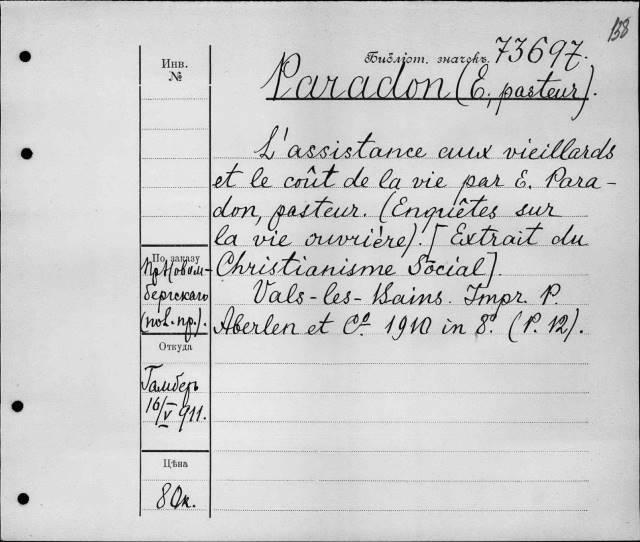 138
Библіот. значокъ. 73697.
Paradon (E., pasteur).
L'assistance aux vieillards
et le coût de la vie par E. Para-
don, pasteur. (Enquêtes sur
la vie ouvrière). [Extrait du
Christianisme Social].
Vals-les-Bains. Impr. P.
Aberlen et Cº 1910 in 8º. (P. 12).
Инв.
№
По заказу
бергскаго
Откуда
Гамберъ
16/V 911.
Цѣна
80к.